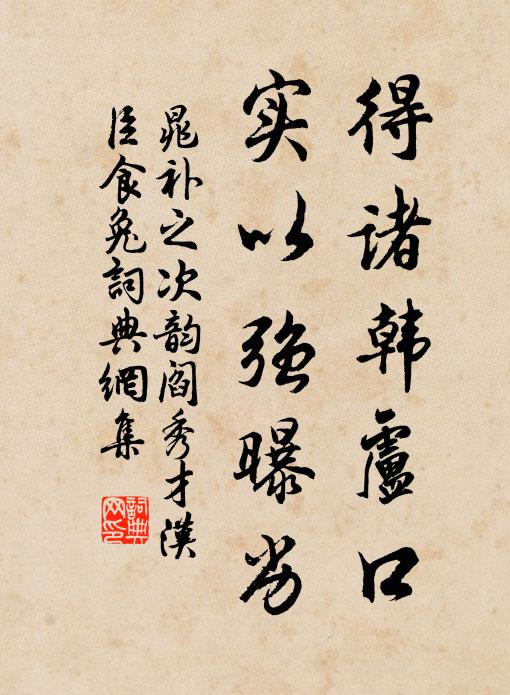 得诸韩盧口
实以强曝劣
晁补之次韵阎秀才汉
臣食兔詞典網集
詞典
网印